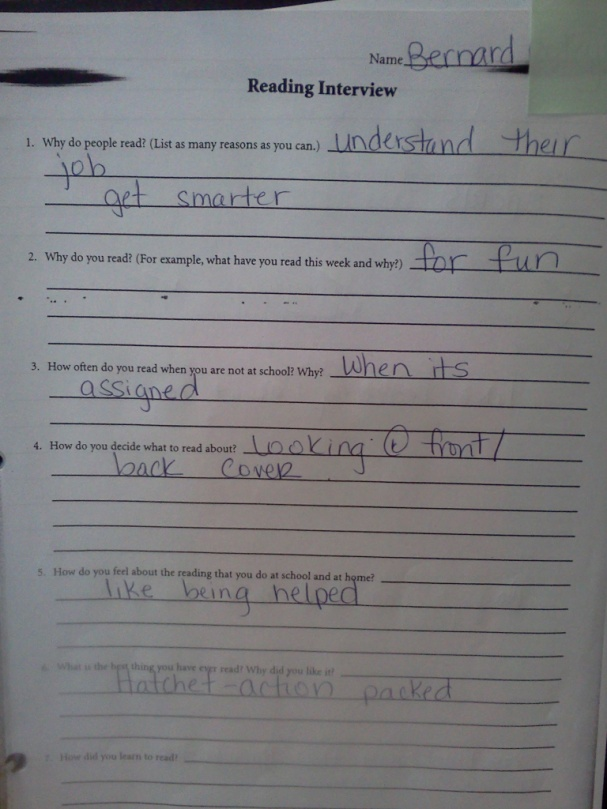 Name Bernard
Reading Interview
1. Why do people read? (List as many reasons as you can.) understand their
job
get smarter
2. Why do you read? (For example, what have you read this week and why?) for fun
3. How often do you read when you are not at school? Why? When its
assigned
4. How do you decide what to read about? Looking @ front/
back cover
5. How do you feel about the reading that you do at school and at home?
like being helped
6. What is the best thing you have ever read? Why did you like it?
Hatchet-action packed
7. How did you learn to read?